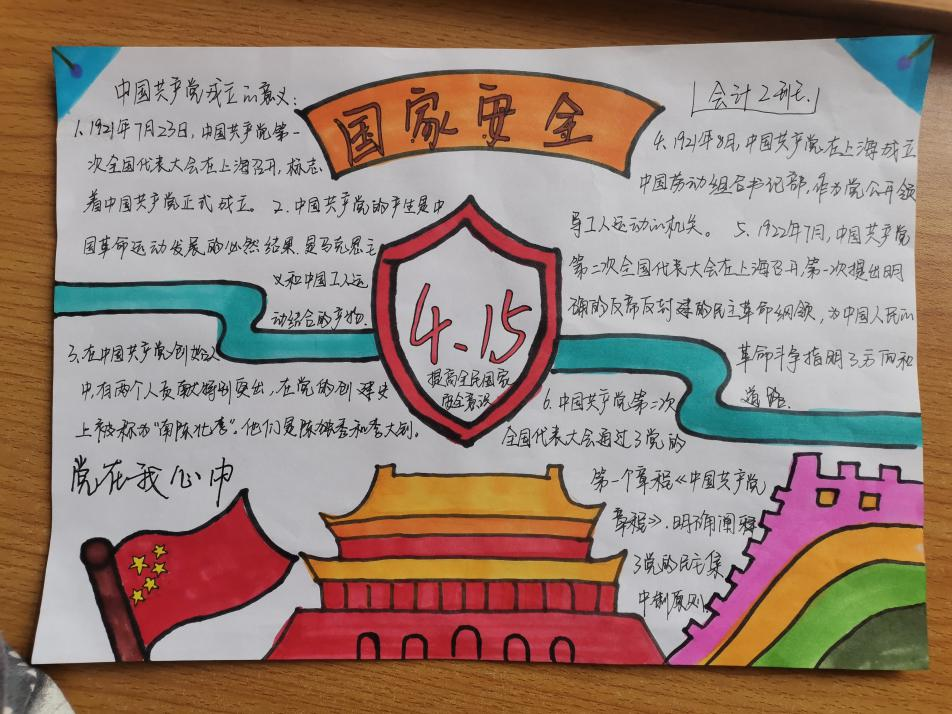 国家安全
会计2班
中国共产党成立的意义：
1.1921年7月23日，中国共产党第一
次全国代表大会在上海召开，标志
着中国共产党正式成立。2.中国共产党的产生是中
国革命运动发展的必然结果，是马克思主
义和中国工人运
动结合的产物.
3.在中国共产党创始人
中，有两个人贡献特别突出，在党的创建史
上被称为“南陈北李”。他们是陈独秀和李大钊。
党在我心中
4.15
提高全民国家
安全意识
4.1921年8月，中国共产党在上海成立
中国劳动组合书记部，作为党公开领
导工人运动的机关。5.1922年7月，中国共产党
第二次全国代表大会在上海召开，第一次提出明
确的反帝反封建的民主革命纲领，为中国人民的
革命斗争指明了方向和
道路.
6.中国共产党第二次
全国代表大会通过了党的
第一个章程《中国共产党
章程》，明确阐释
了党的民主集
中制原则.